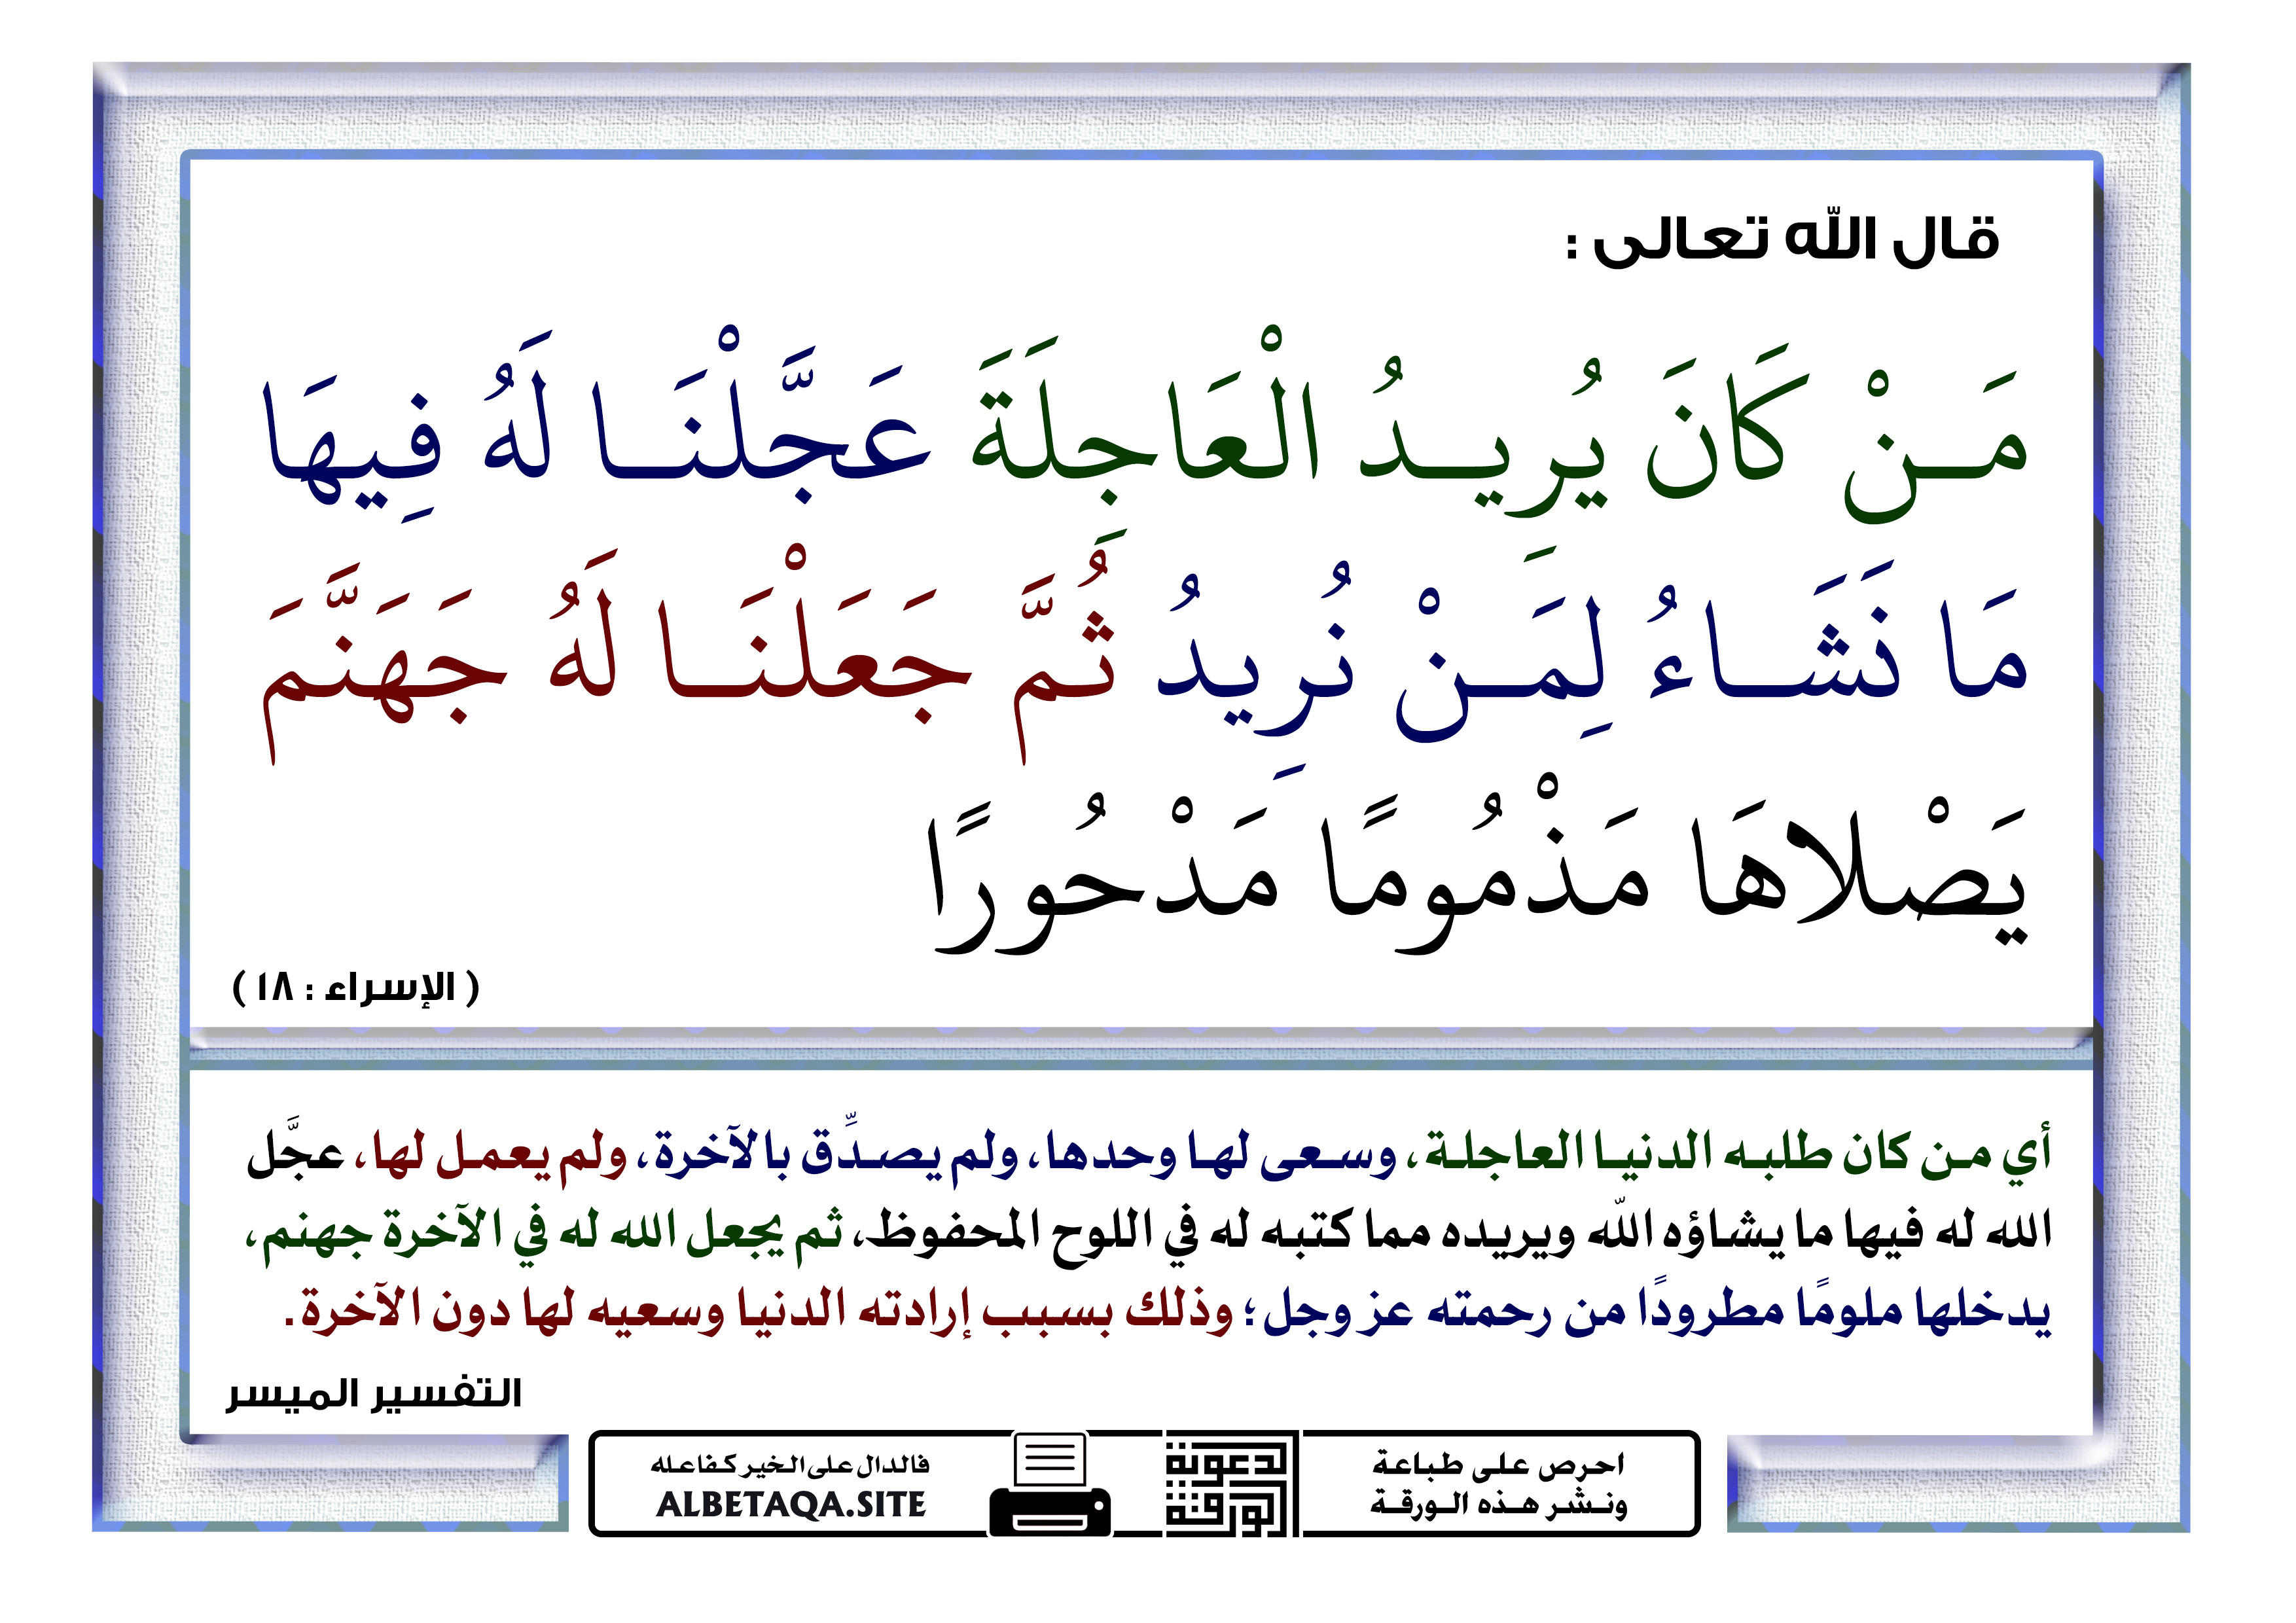 قال الله تعالى :
مَـنْ كَانَ يُرِيـدُ الْعَاجِلَةَ عَجَّلْنَـا لَهُ فِيهَا
مَا نَشَـاءُ لِمَـنْ نُرِيدُ ثُمَّ جَعَلْنَـا لَهُ جَهَنَّمَ
يَصْلاهَا مَذْمُومًا مَدْحُورًا
( الإسراء : ١٨ )
أي مـن كان طلبـه الدنيـا العاجلـة، وسـعى لهـا وحدهـا، ولم يصـدِّق بالآخرة، ولم يعمـل لهـا، عجَّل
الله له فيها ما يشاؤه اللّه ويريده مما كتبه له في اللوح المحفوظ، ثم يجعل الله له في الآخرة جهنم،
يدخلها ملومًا مطرودًا من رحمته عز وجل؛ وذلك بسبب إرادته الدنيا وسعيه لها دون الآخرة.
التفسير الميسر
احرص على طباعة
ونـشر هـذه الـورقـة
الدعوية
الورقة
فالدال على الخير كفاعله
ALBETAQA.SITE